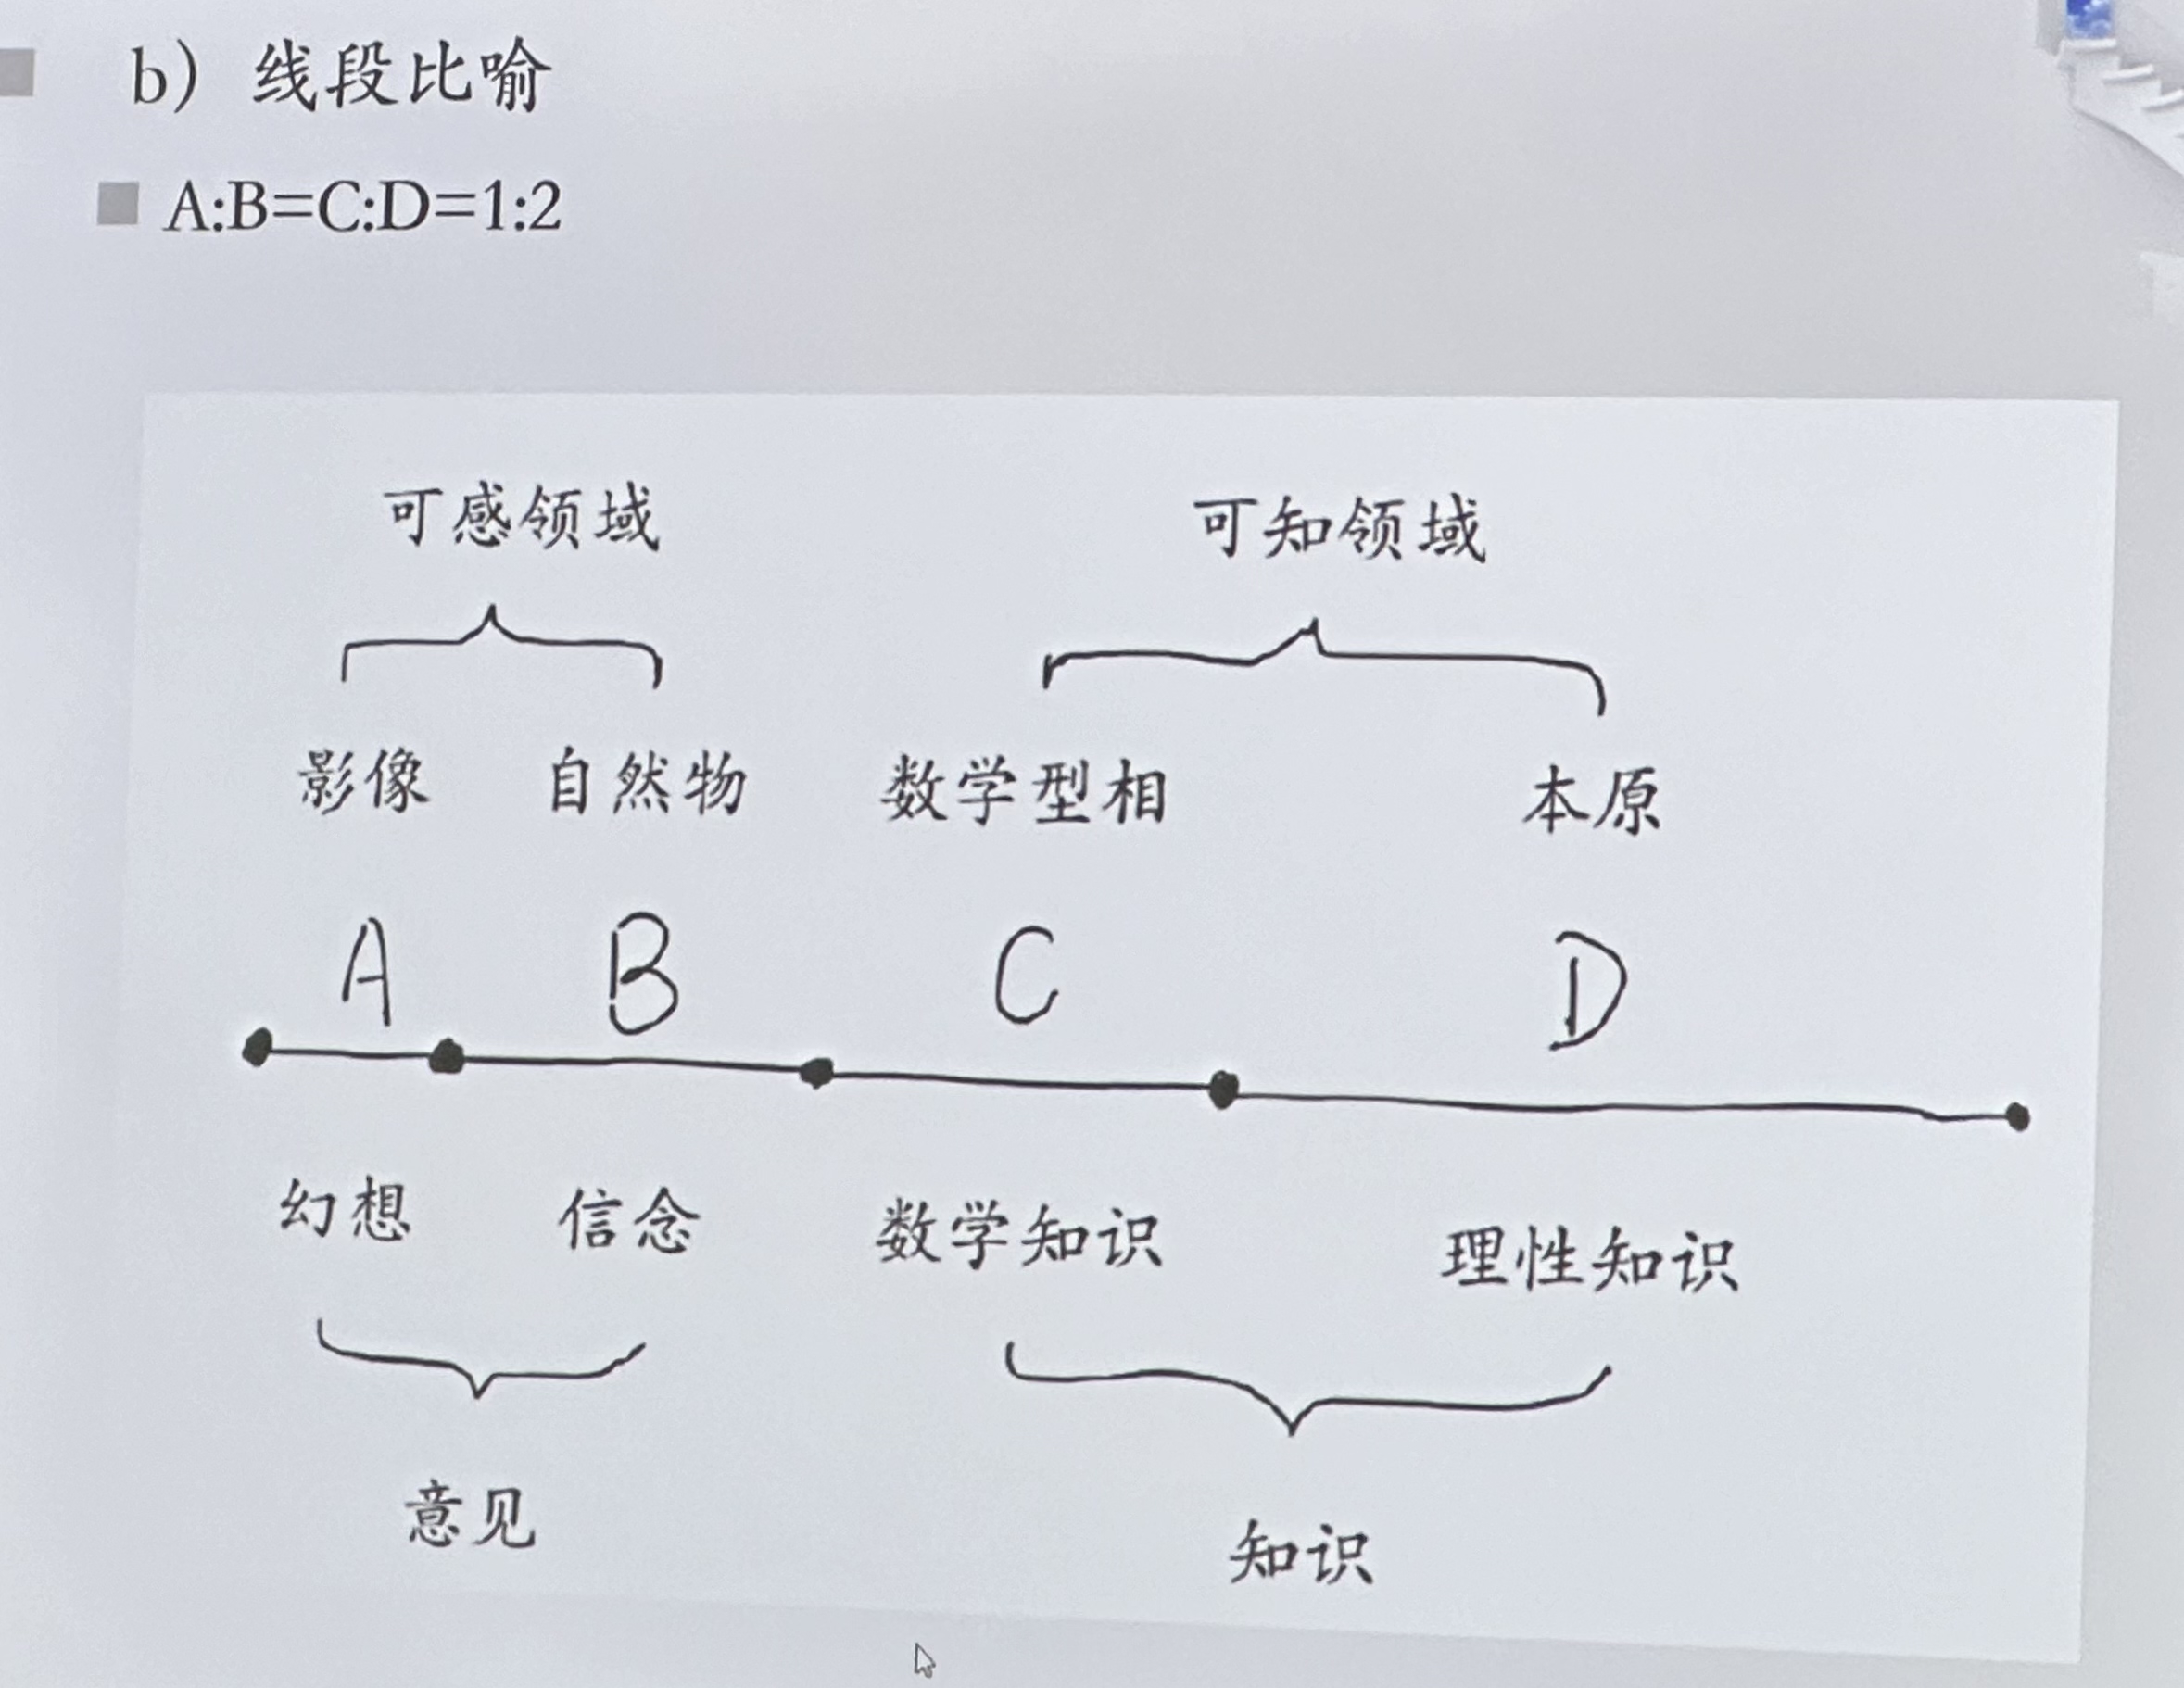 b) 线段比喻
A:B=C:D=1:2
可感领域 可知领域
影像 自然物 数学型相 本原
A B C D
幻想 信念 数学知识 理性知识
意见 知识